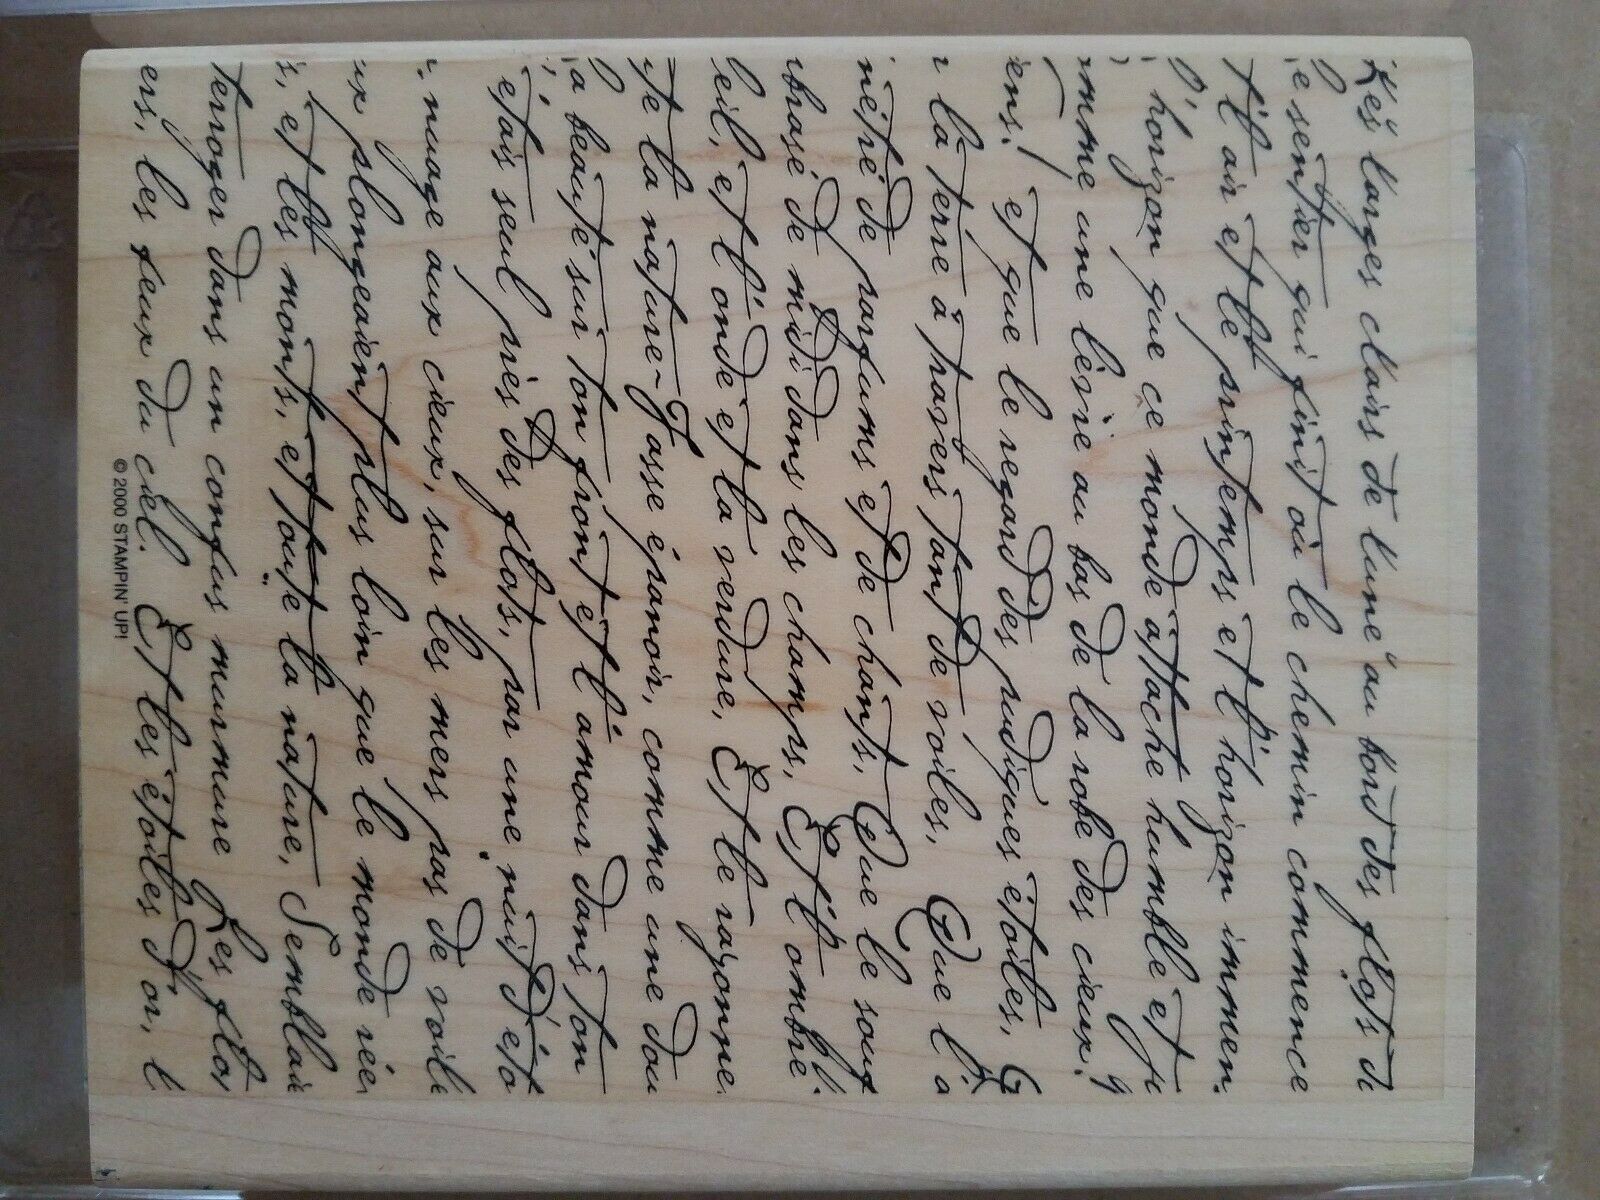 Les larges clairs de lune au bord des flots d
e sentier qui finit où le chemin commence
t l'air et le printemps et l'horizon immen
l'horizon que ce monde attache humble et jo
omme une lèvre au bas de la robe des cieux! q
ens! et que le regard des pudiques étoiles, Q
r la terre à travers tant de voiles, Que l'a
nétré de parfums et de chants, Que le souf
brasé de midi dans les champs, Et l'ombre
leil, et l'onde et la verdure, Et le rayonne
te la nature- Fasse épanoir, comme une dou
a beauté sur ton front et l'amour dans ton
étais seul près des flots, par une nuit d'éto
nuage aux cieux, sur les mers pas de voile
ux plongeaient plus loin que le monde rée
s, et les monts, et toute la nature, Semblai
terroger dans un confus murmure Les flo
ers, les feux du ciel. Et les étoiles d'or, l
© 2000 STAMPIN' UP!